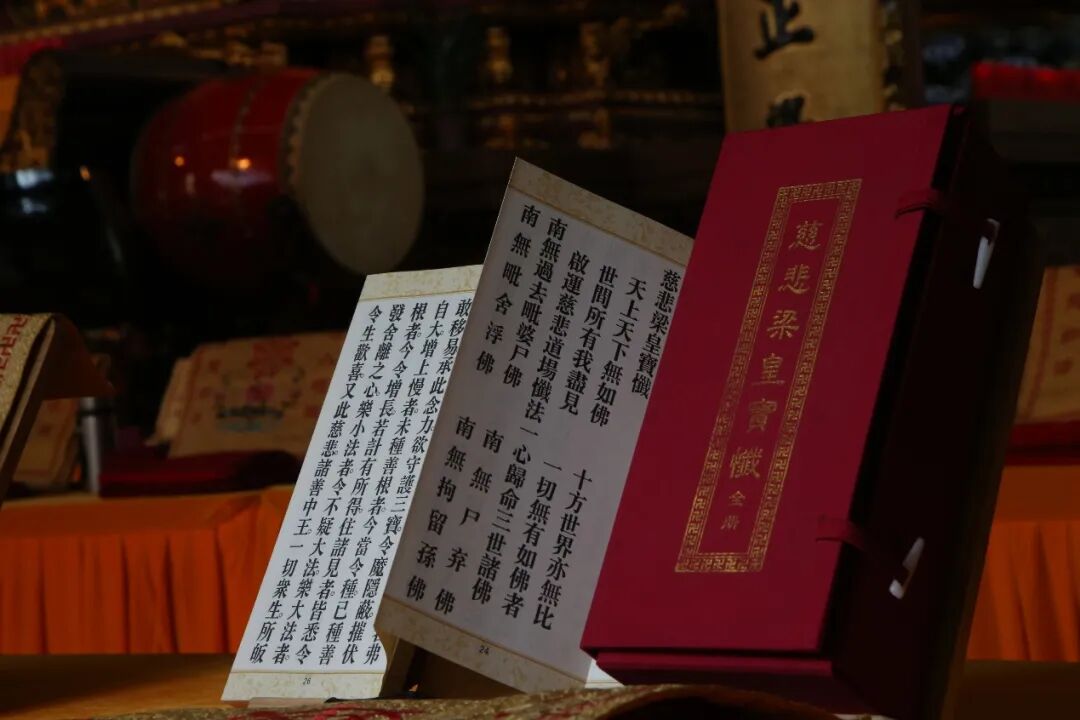 慈悲梁皇寶懺
全冊
慈悲梁皇寶懺
天上天下無如佛 十方世界亦無比
世間所有我盡見 一切無有如佛者
啟運慈悲道場懺法一心歸命三世諸佛
南無過去毗婆尸佛 南無尸弃佛
南無毗舍浮佛 南無拘留孫佛
24
敢移易承此念力欲守護三寶令魔隱蔽摧伏
自大增上慢者未種善根者今當令種已種善
根者今令增長若計有所得住諸見者皆悉令
發舍離之心樂小法者令不疑大法樂大法者
令生歡喜又此慈悲諸善中王一切眾生所皈
26
止